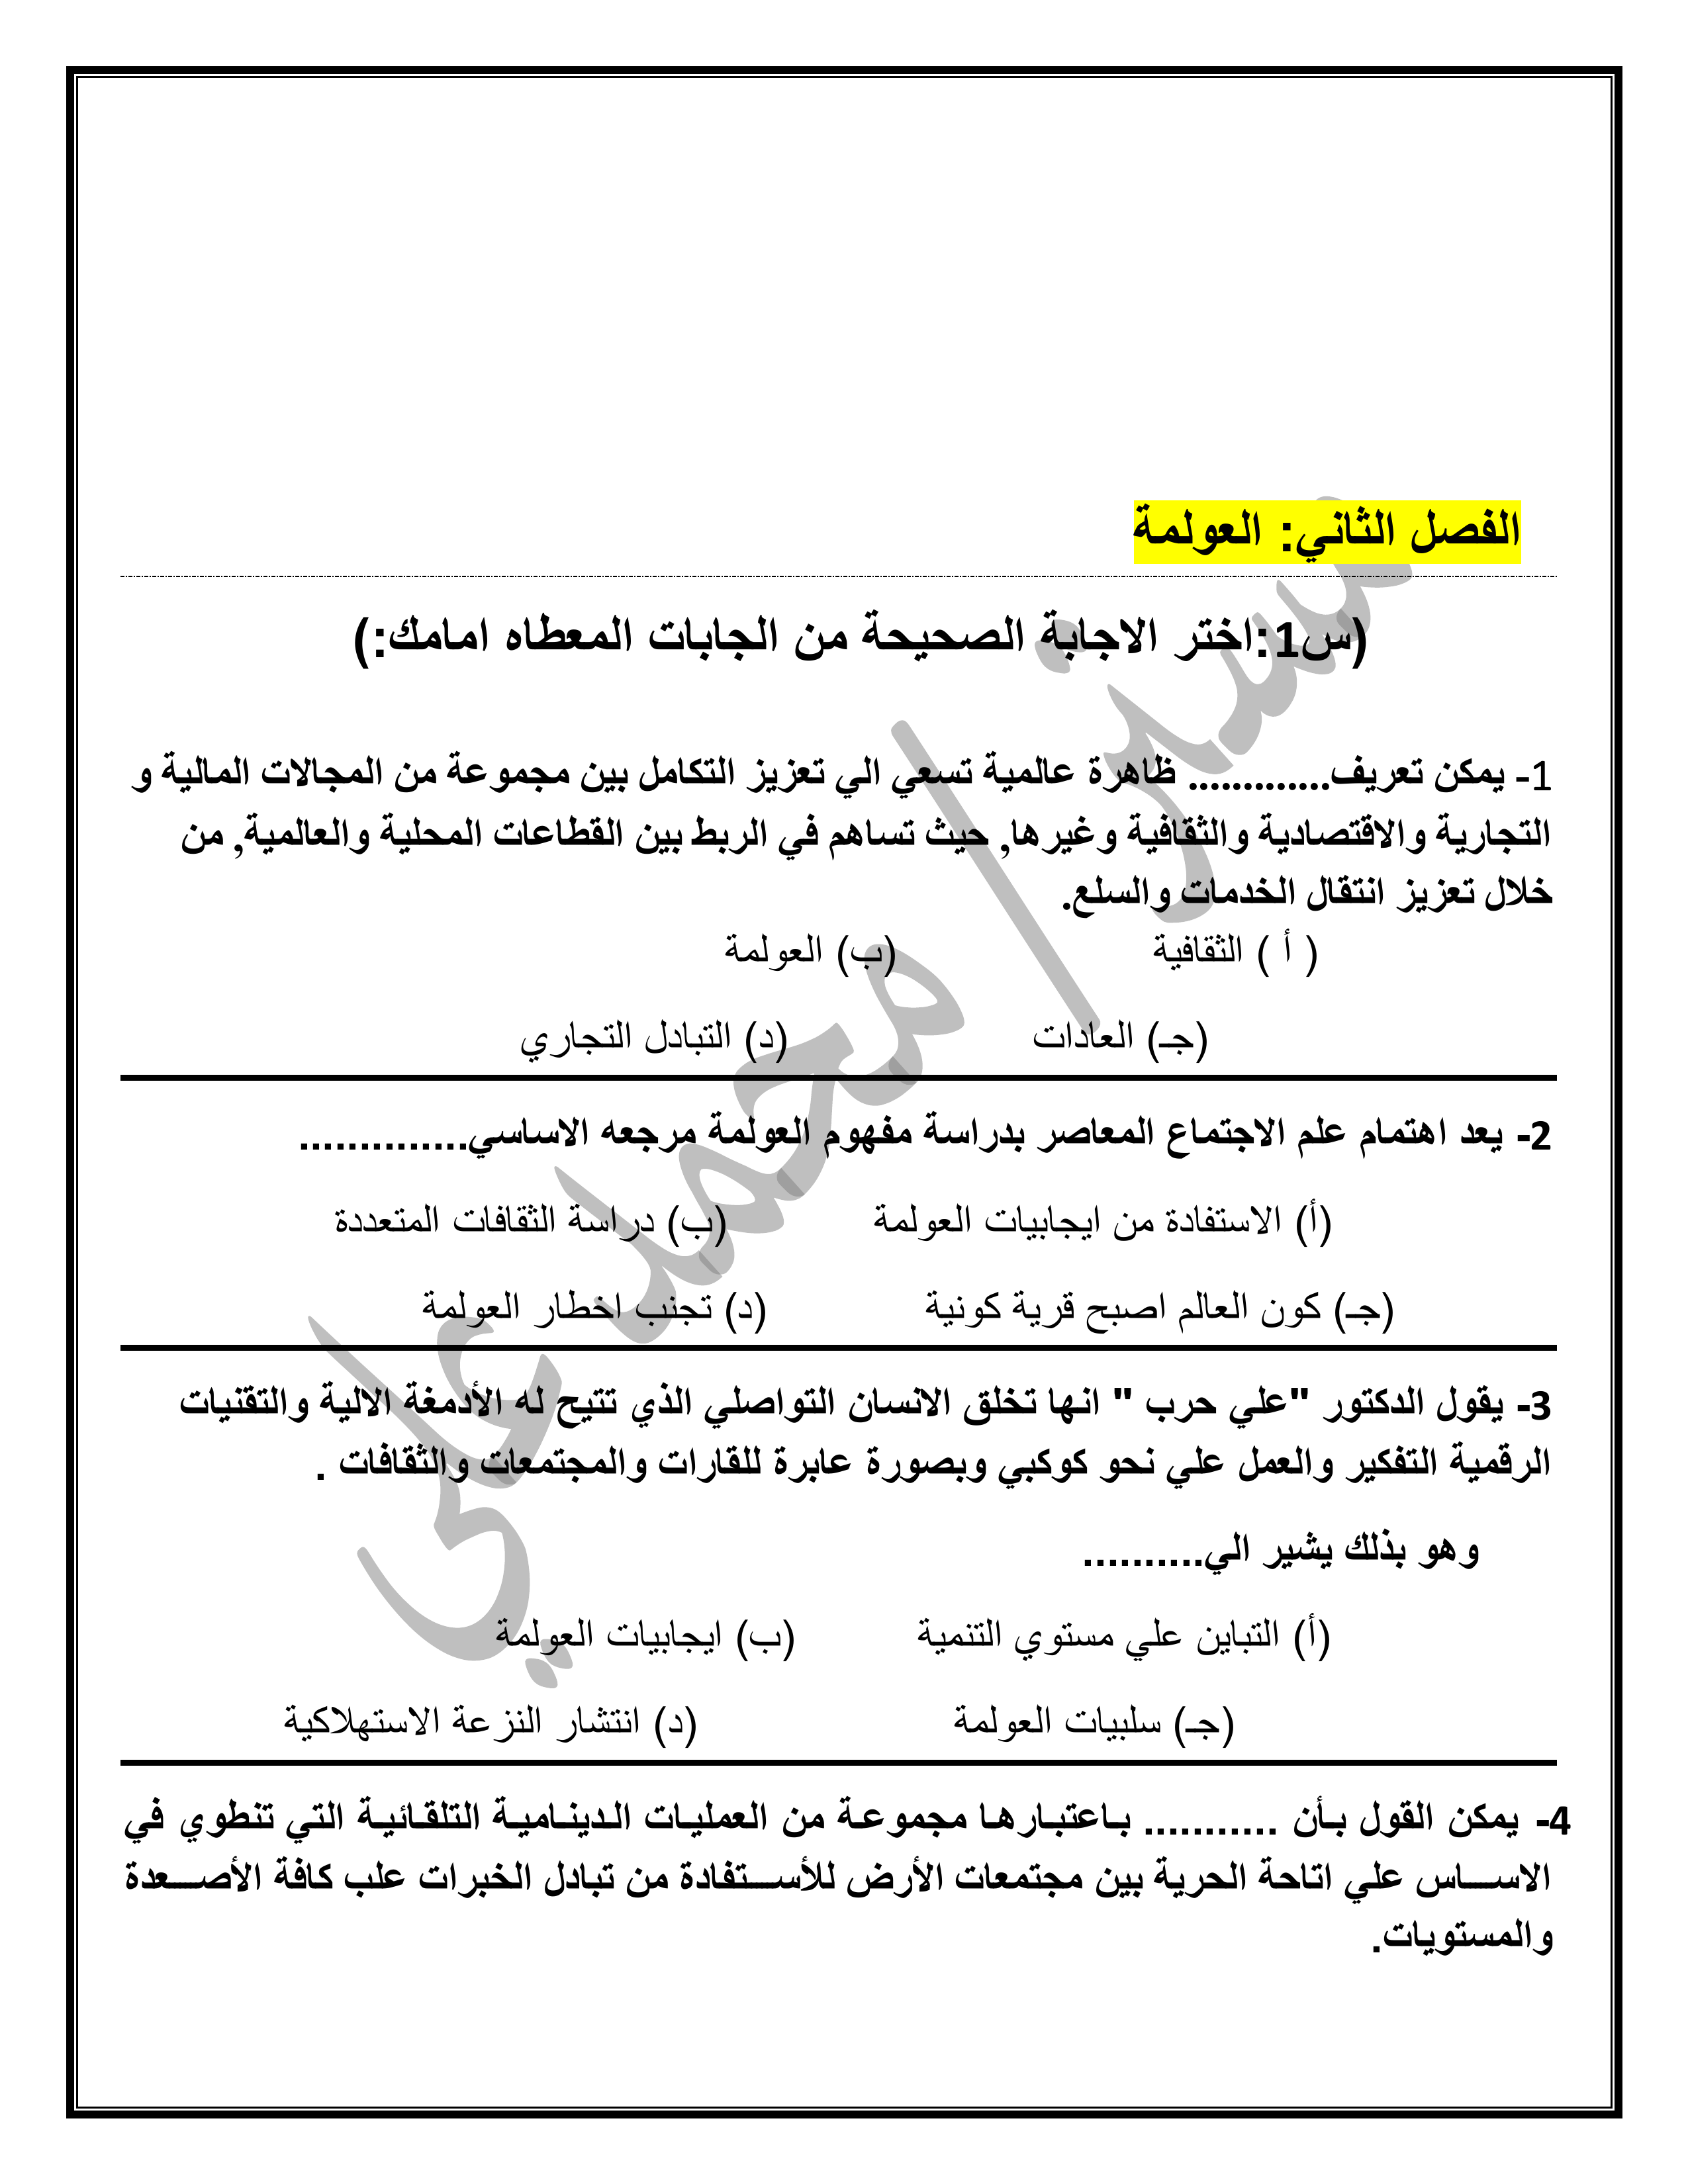 الفصل الثاني: العولمة
(س1:اختر الاجابة الصحيحة من الجابات المعطاه امامك:)
1- يمكن تعريف............. ظاهرة عالمية تسعي الي تعزيز التكامل بين مجموعة من المجالات المالية و
التجارية والاقتصادية والثقافية وغيرها, حيث تساهم في الربط بين القطاعات المحلية والعالمية, من
خلال تعزيز انتقال الخدمات والسلع.
( أ ) الثقافية (ب) العولمة
(جـ) العادات (د) التبادل التجاري
2- يعد اهتمام علم الاجتماع المعاصر بدراسة مفهوم العولمة مرجعه الاساسي..............
(أ) الاستفادة من ايجابيات العولمة (ب) دراسة الثقافات المتعددة
(جـ) كون العالم اصبح قرية كونية (د) تجنب اخطار العولمة
3- يقول الدكتور "علي حرب " انها تخلق الانسان التواصلي الذي تتيح له الأدمغة الالية والتقنيات
الرقمية التفكير والعمل علي نحو كوكبي وبصورة عابرة للقارات والمجتمعات والثقافات .
وهو بذلك يشير الي..........
(أ) التباين علي مستوي التنمية (ب) ايجابيات العولمة
(جـ) سلبيات العولمة (د) انتشار النزعة الاستهلاكية
4- يمكن القول بأن ........... باعتبارها مجموعة من العمليات الدينامية التلقائية التي تنطوي في
الاســـاس علي اتاحة الحرية بين مجتمعات الأرض للأســـتفادة من تبادل الخبرات علب كافة الأصـــعدة
والمستويات.
مستر/ محمد علي